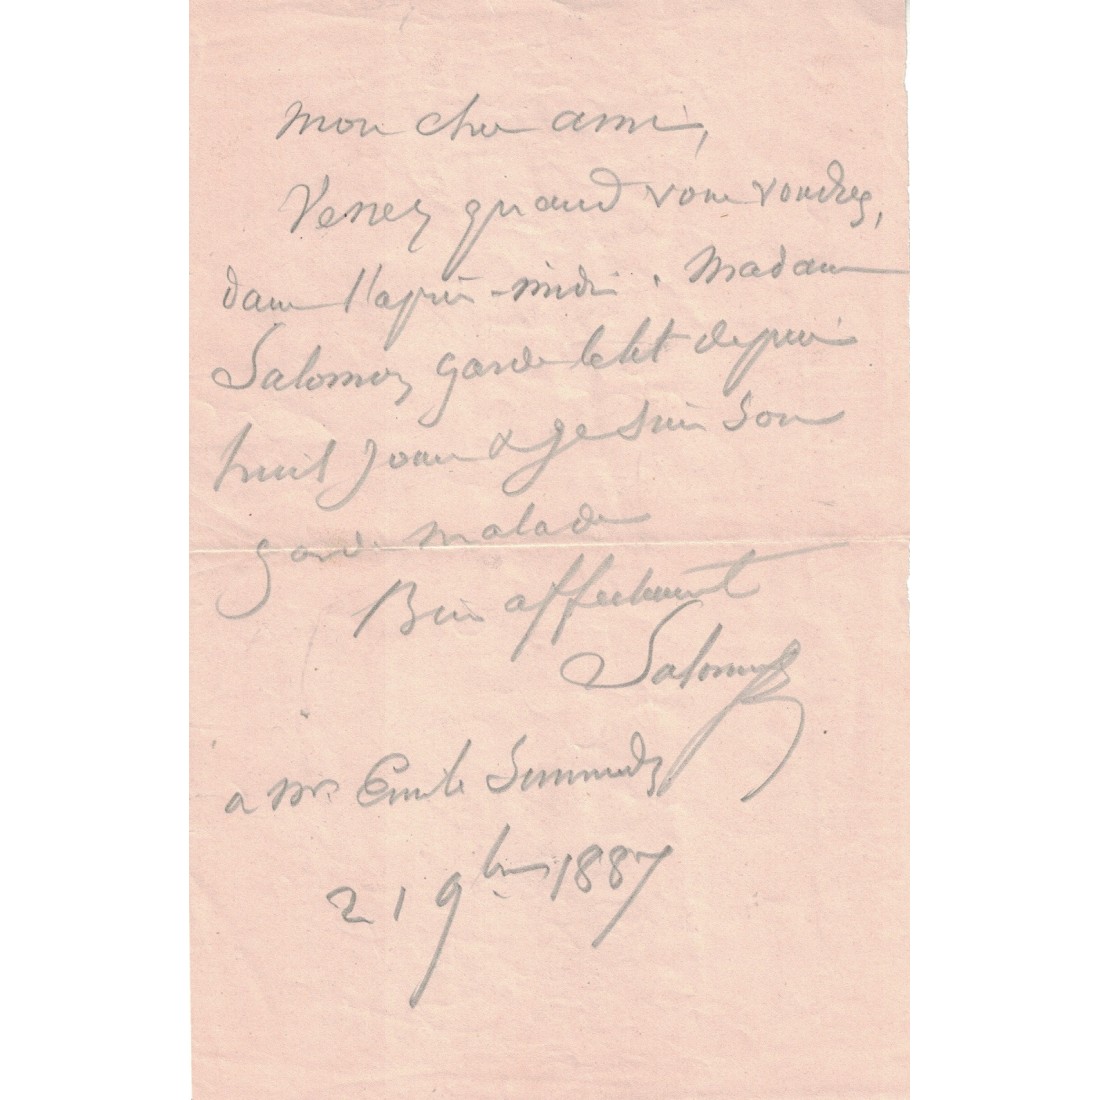 Mon cher ami,
Venez quand vous voudrez,
dans l'après-midi. Madame
Salomon garde le lit depuis
huit jours & je suis son
garde malade
Bien affectueusement
Salomon
a Mr. Emile
21 9bre 1887